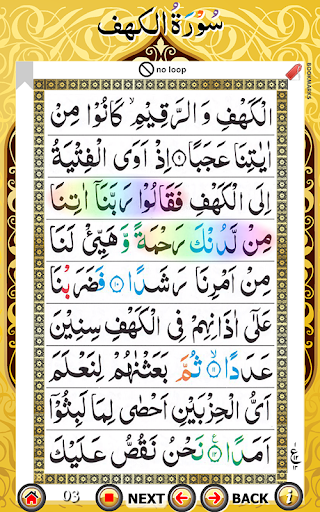 سُوْرَةُ الْكَهْف
no loop
BOOKMARKS
الْكَهْفِ وَ الرَّقِيْمِ ۙ كَانُوْا مِنْ
اٰيٰتِنَا عَجَبًا ۹ اِذْ اَوَى الْفِتْيَةُ
اِلَى الْكَهْفِ فَقَالُوْا رَبَّنَاۤ اٰتِنَا
مِنْ لَّدُنْكَ رَحْمَةً وَّ هَيِّئْ لَنَا
مِنْ اَمْرِنَا رَشَدًا ۱۰ فَضَرَبْنَا
عَلٰۤى اٰذَانِهِمْ فِى الْكَهْفِ سِنِيْنَ
عَدَدًا ۱۱ ثُمَّ بَعَثْنٰهُمْ لِنَعْلَمَ
اَىُّ الْحِزْبَيْنِ اَحْصٰى لِمَا لَبِثُوْۤا
اَمَدًا ۱۲ نَحْنُ نَقُصُّ عَلَيْكَ
03 NEXT BACK i